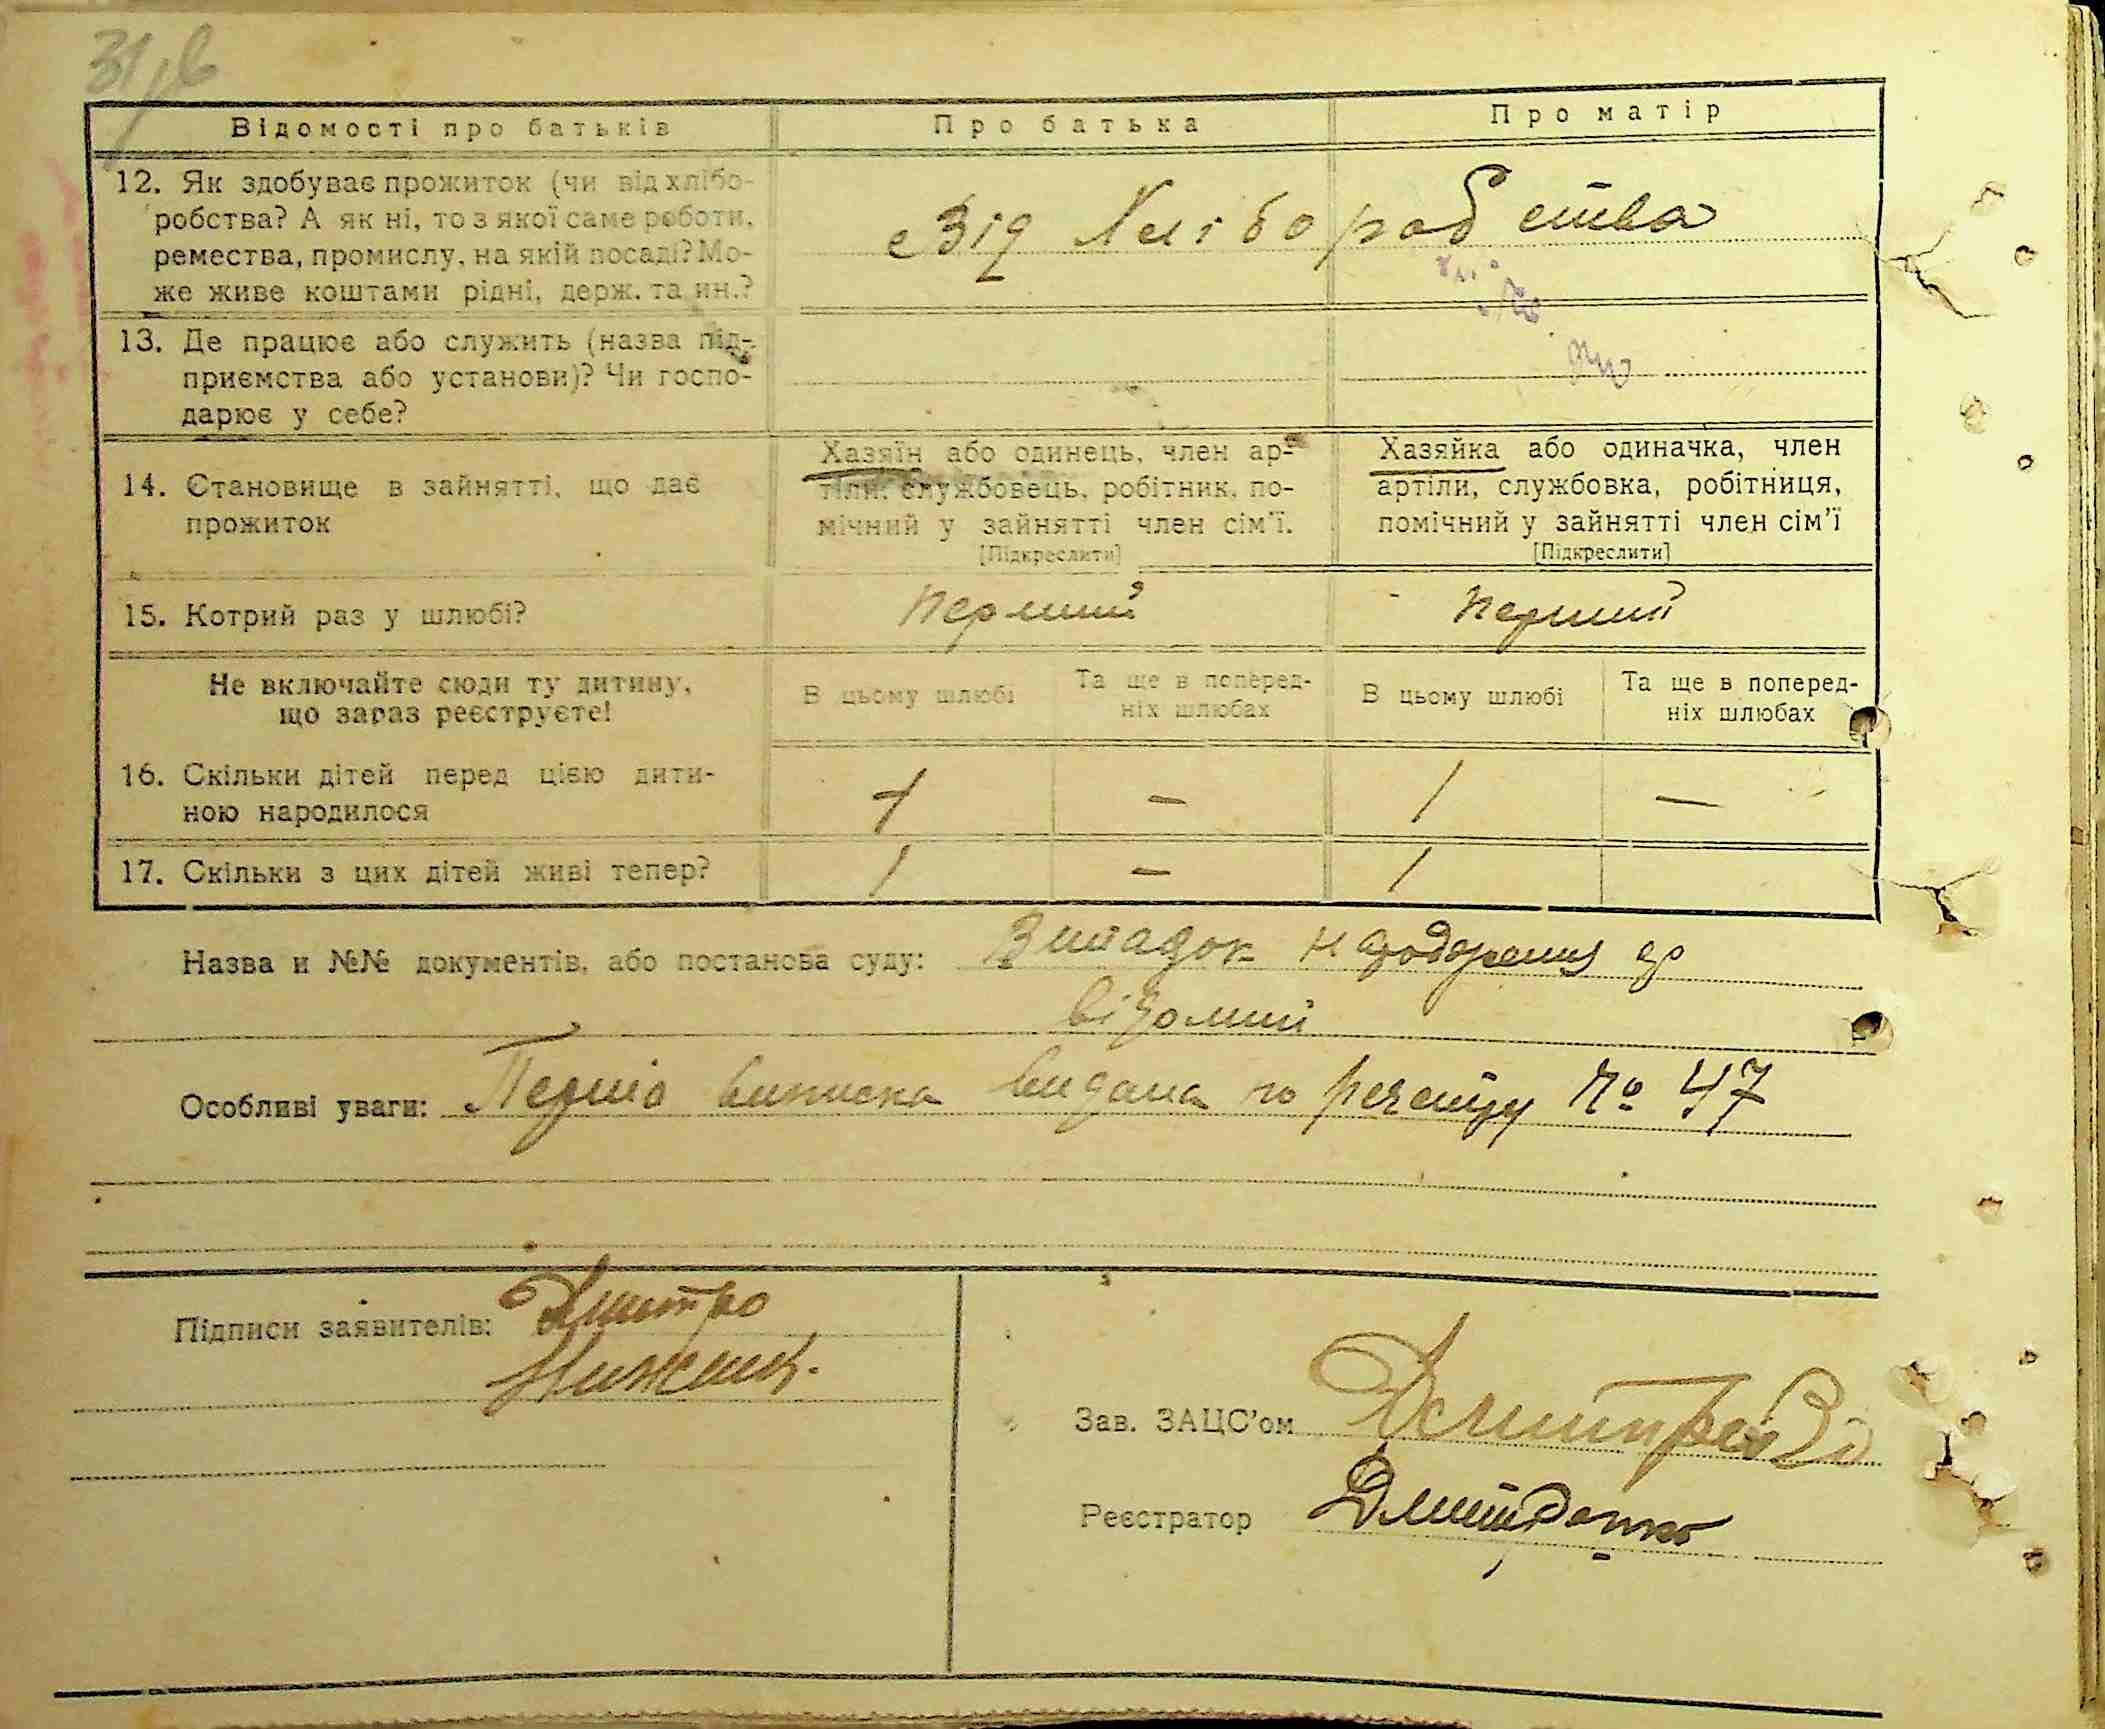 31/в
Відомості про батьків
Про батька
Про матір
12. Як здобуває прожиток (чи від хлібо-
робства? А як ні, то з якої саме роботи,
ремества, промислу, на якій посаді? Мо-
же живе коштами рідні, держ. та ин.?
Від Хліборобства
13. Де працює або служить (назва під-
приємства або установи)? Чи госпо-
дарює у себе?
14. Становище в зайнятті, що дає
прожиток
Хазяїн або одинець, член ар-
тіли, службовець, робітник, по-
мічний у зайнятті член сім'ї.
[Підкреслити]
Хазяйка або одиначка, член
артіли, службовка, робітниця,
помічний у зайнятті член сім'ї
[Підкреслити]
15. Котрий раз у шлюбі?
Перший
Перший
Не включайте сюди ту дитину,
що зараз реєструєте!
В цьому шлюбі
Та ще в поперед-
ніх шлюбах
В цьому шлюбі
Та ще в поперед-
ніх шлюбах
16. Скільки дітей перед цією дити-
ною народилося
1 — 1 —
17. Скільки з цих дітей живі тепер?
1 — 1
Назва и №№ документів, або постанова суду: Випадок
відомий
Особливі уваги: виписка видана по № 47
Підписи заявителів: Дмитро
Зав. ЗАЦС'ом
Реєстратор Дмитренко